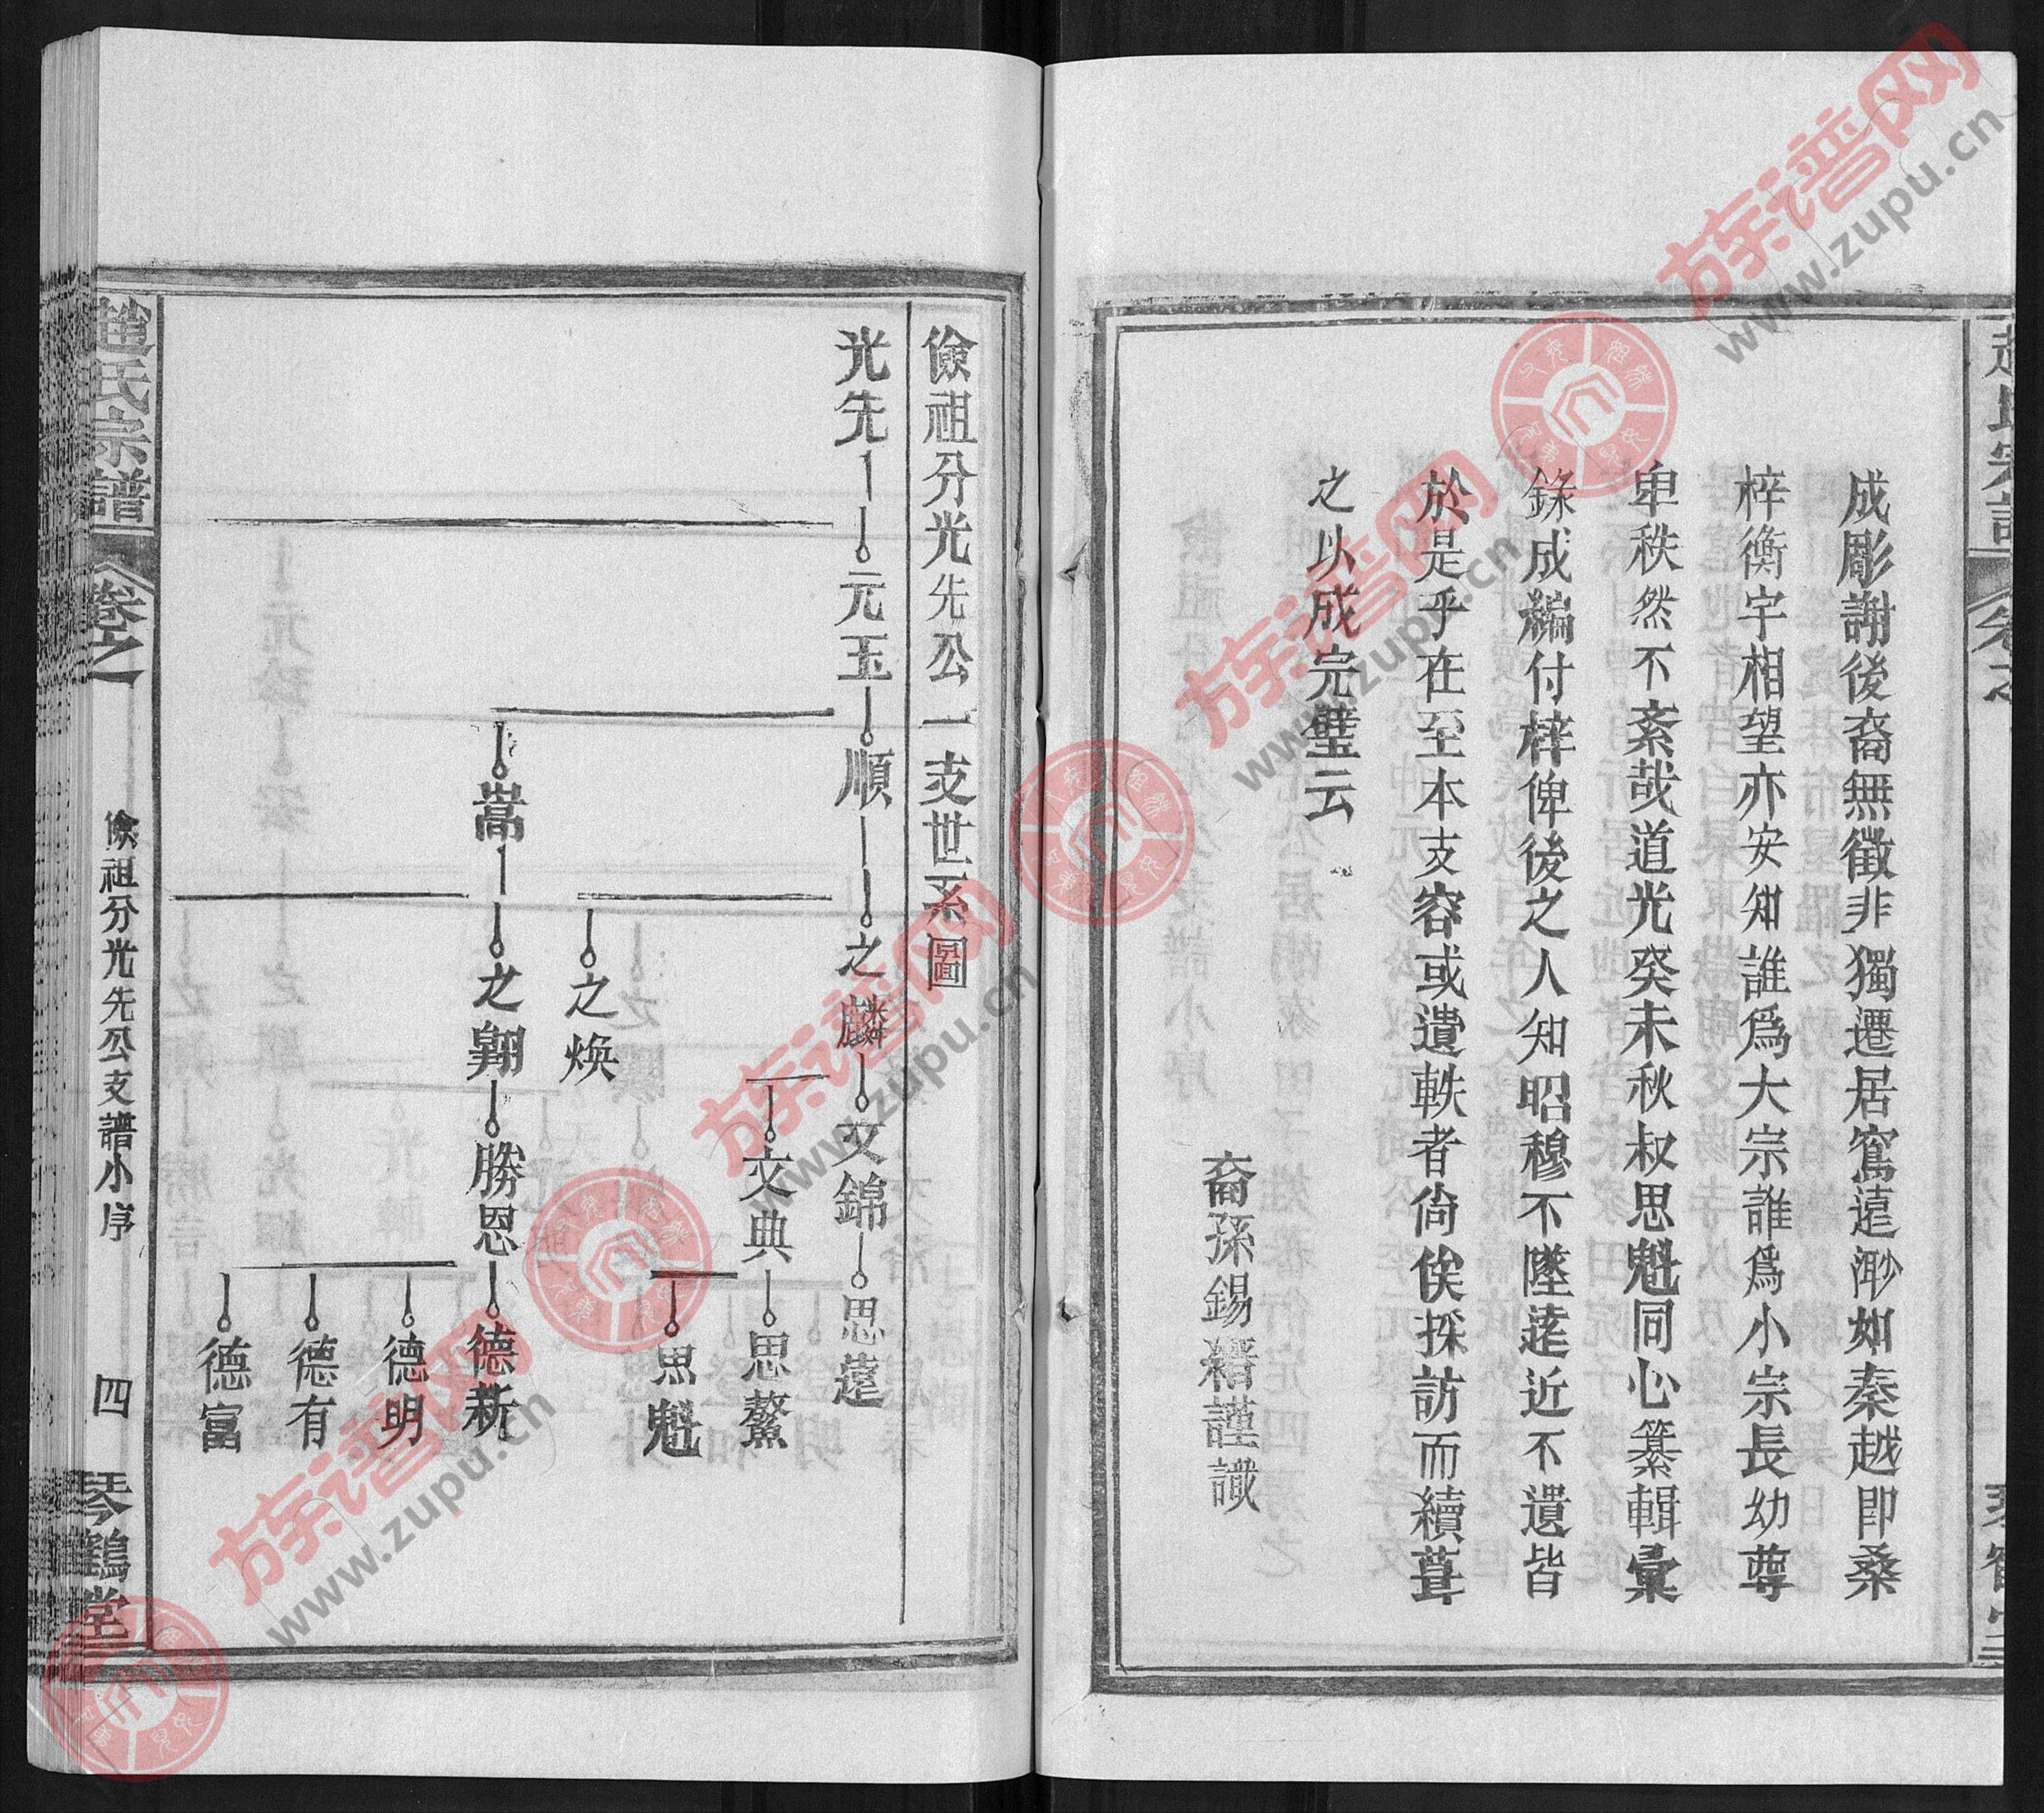 成彫謝後裔無徵非獨遷居窵遠渺如秦越即桑
梓衡宇相望亦安知誰爲大宗誰爲小宗長幼尊
卑秩然不紊哉道光癸未秋叔思魁同心纂輯彙
錄成編付梓俾後之人知昭穆不墜遠近不遺皆
於是乎在至本支容或遺軼者尙俟採訪而續葺
之以成完璧云
裔孫錫縉謹識
儉祖分光先公一支世系圖
光先 元玉 順 之麟 文錦 思蓬
文典 思鰲
思魁
之煥
嵩 之翺 勝恩 德新
德明
德有
德富
趙氏宗譜 卷之 儉祖分光先公支譜小序 四 琴鶴堂
族谱网
www.zupu.cn
族谱网
www.zupu.cn
族谱网
www.zupu.cn
族谱网
www.zupu.cn